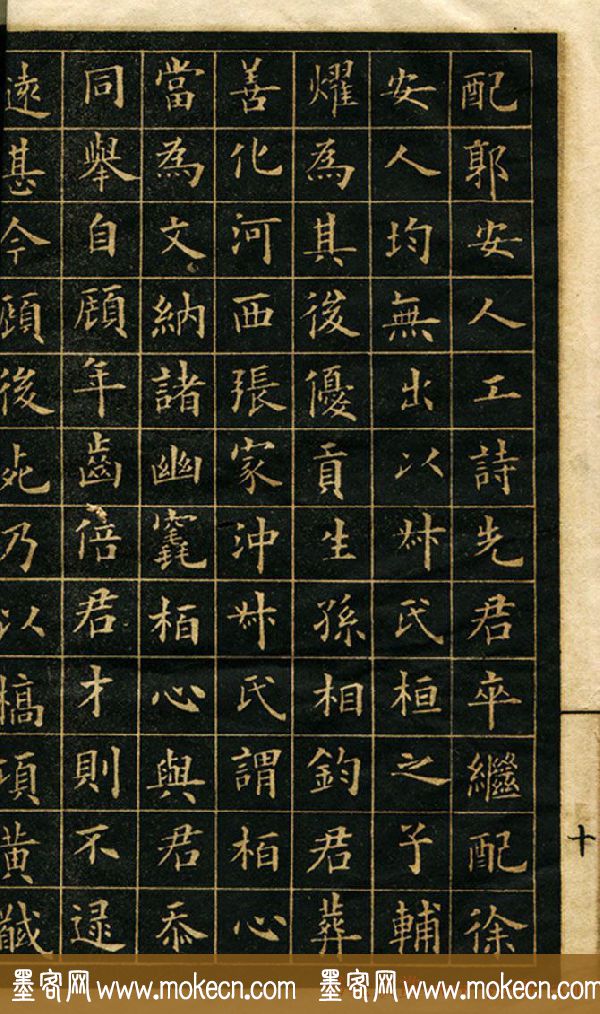 配郭安人工詩先君卒繼配徐
安人均無出以叔氏桓之子輔
燿為其後優貢生孫相鈞君葬
善化河西張家沖叔氏謂栢心
當為文納諸幽竁栢心與君忝
同舉自顧年齒倍君才則不逮
遠甚今顧後死乃以槁項黃馘
十
墨客网 www.mokecn.com 墨客网 www.mokecn.com